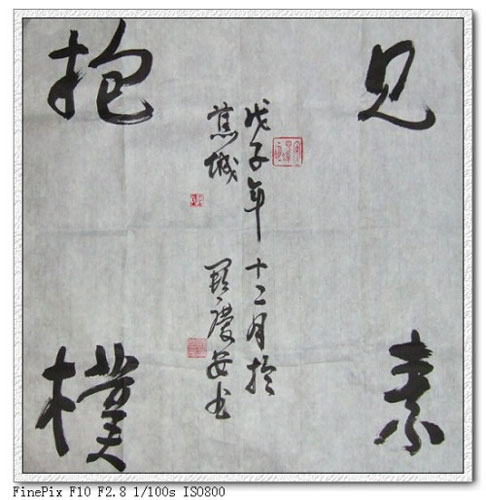 见素
抱樸
戊子年十二月於
蕉城 慶安书
FinePix F10 F2.8 1/100s ISO800